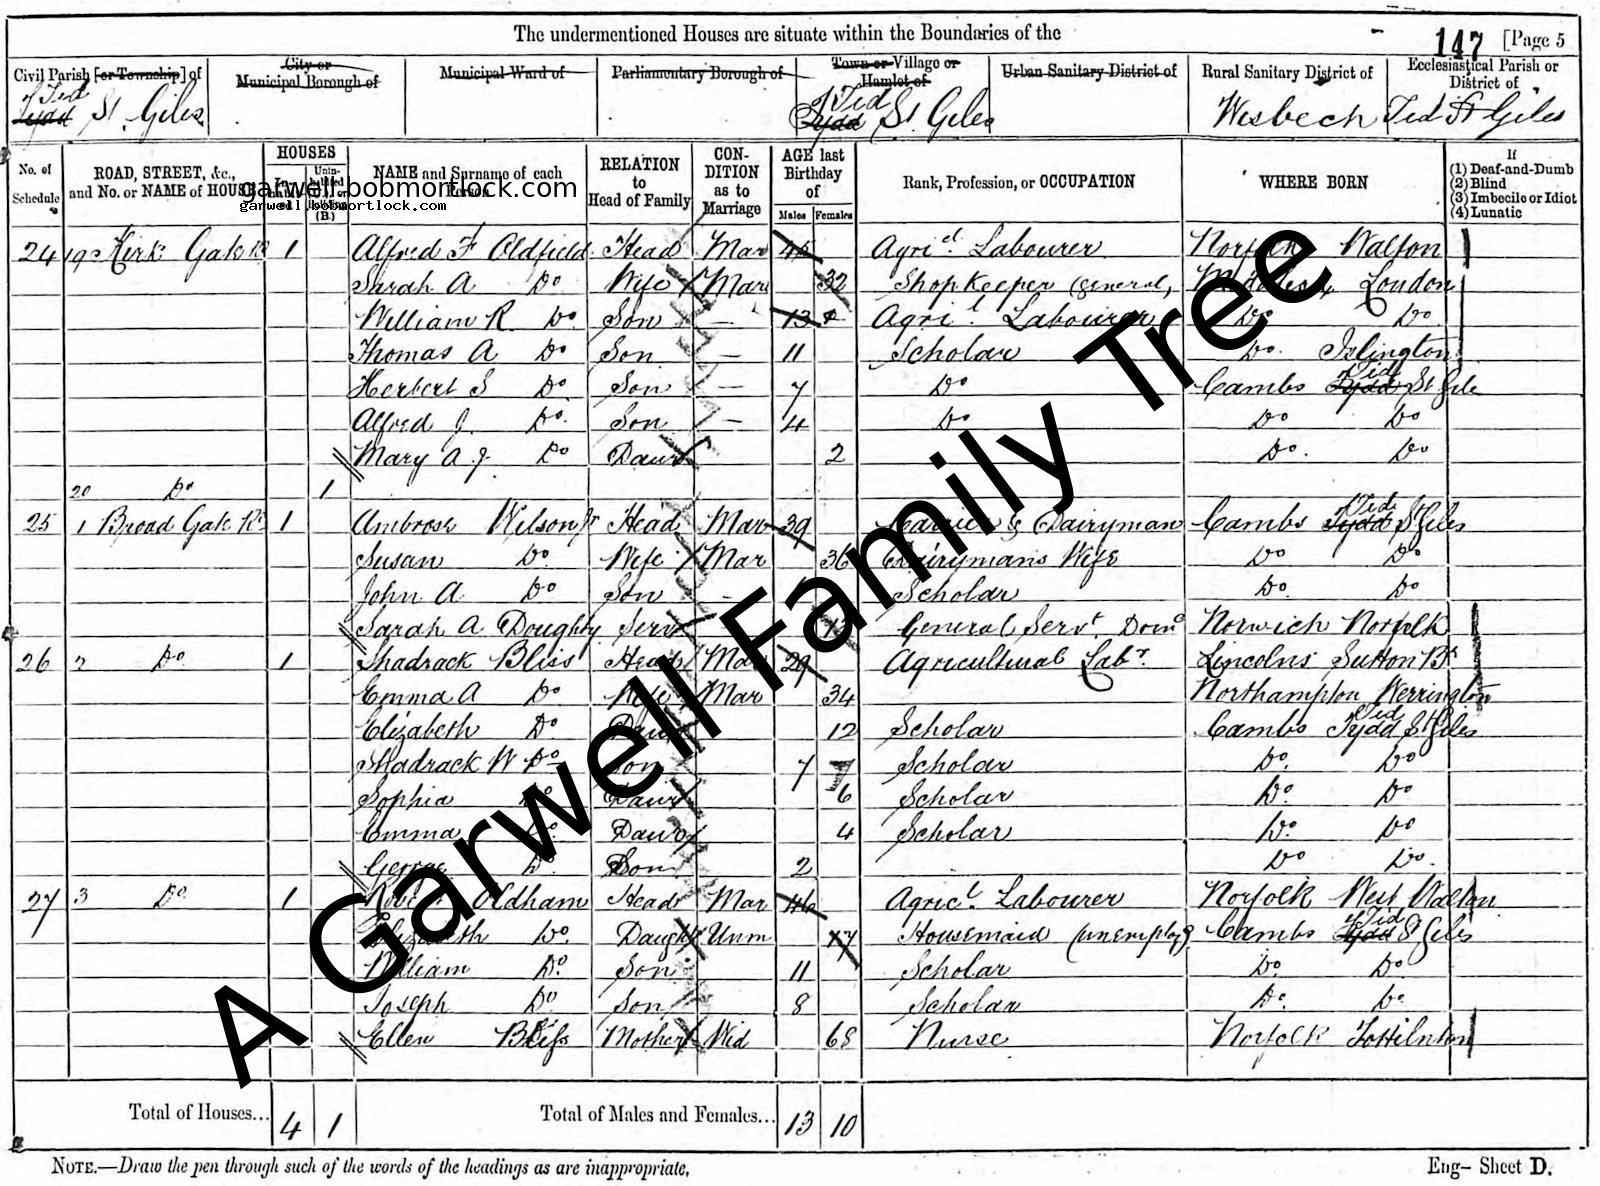 The undermentioned Houses are situate within the Boundaries of the 147 [Page 5
Civil Parish [or Township] of City or Municipal Borough of Municipal Ward of Parliamentary Borough of Town or Village or Hamlet of Urban Sanitary District of Rural Sanitary District of Ecclesiastical Parish or District of
Tid Tydd St. Giles Tid Tydd St. Giles Wisbech Tid St Giles
No. of Schedule ROAD, STREET, &c., and No. or NAME of HOUSE HOUSES (B.) NAME and Surname of each Person RELATION to Head of Family CON-DITION as to Marriage AGE last Birthday of Males Females Rank, Profession, or OCCUPATION WHERE BORN If (1) Deaf-and-Dumb (2) Blind (3) Imbecile or Idiot (4) Lunatic
garwell.bobmortlock.com
garwell.bobmortlock.com
24 19 Kirk Gate Rd 1 Alfred F Oldfield Head Mar 45 Agri. Labourer Norfolk Walton
Sarah A Do Wife Mar 32 Shopkeeper (general) Middlesex London
William R Do Son — 13 Agri. Labourer Do Do
Thomas A Do Son — 11 Scholar Do. Islington
Herbert S Do Son — 7 Do Cambs Tid Tydd St Giles
Alfred J. Do. Son — 4 Do Do Do
Mary A J Do Daur 2 Do. Do
20 Do 1
25 1 Broad Gate Rd 1 Ambrose Wilson Jr Head Mar 39 Carrier & Dairyman Cambs Tid Tydd St Giles
Susan Do. Wife Mar 36 Dairyman's Wife Do Do
John A Do Son – Scholar Do. Do
Sarah A Doughty Serv General Servt. Domc Norwich Norfolk
26 2 Do. 1 Shadrack Bliss Head Mar 29 Agricultural Labr. Lincolns Sutton Br
Emma A Do. Wife Mar 34 Northampton Werrington
Elizabeth Do Daur 12 Scholar Cambs Tid Tydd St Giles
Shadrack W Do Son 7 Scholar Do. Do
Sophia Do Daur 6 Scholar Do. Do
Emma Do. Daur 4 Scholar Do. Do
George Do Son 2 Do Do.
27 3 Do. 1 Robert Oldham Head Mar 46 Agricl. Labourer Norfolk West Walton
Elizabeth Do. Daugh Unm 17 Housemaid (unemploy) Cambs Tid Tydd St Giles
William Do. Son 11 Scholar Do. Do.
Joseph Do Son 8 Scholar Do. Do.
Ellen Bliss Mother Wid 68 Nurse Norfolk
Total of Houses... 4 1 Total of Males and Females... 13 10
NOTE.—Draw the pen through such of the words of the headings as are inappropriate.
Eng— Sheet D.
A Garwell Family Tree